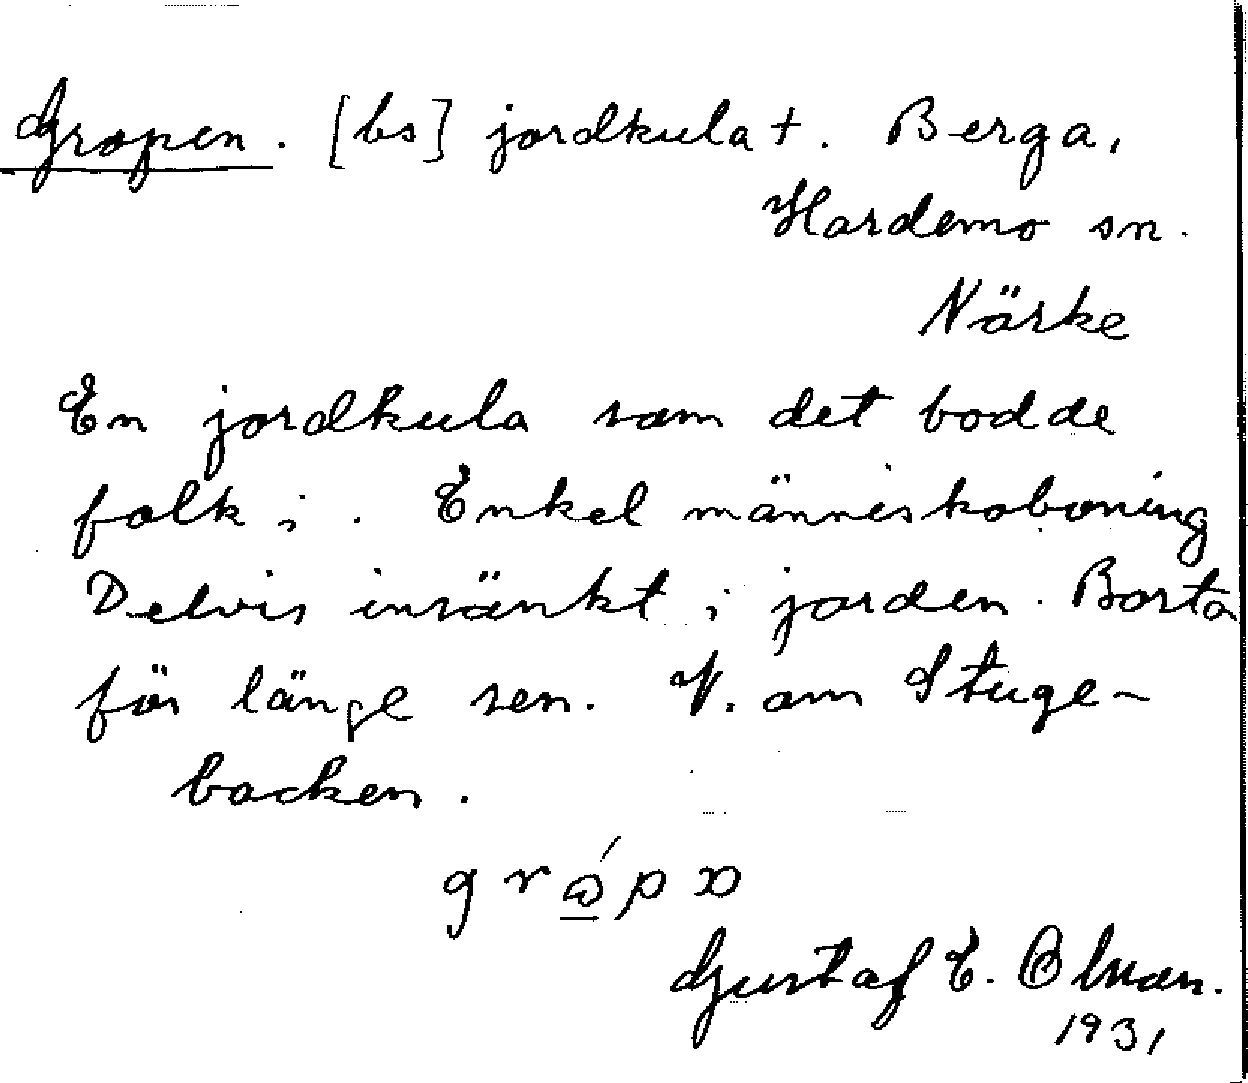 Gropen. [bs] jordkula +. Berga,
Hardemo sn.
Närke
En jordkula som det bodde
folk i. Enkel människoboning
Delvis insänkt i jorden. Borta
för länge sen. V. om Stuge-
backen.
Gustaf E. Olman.
1931